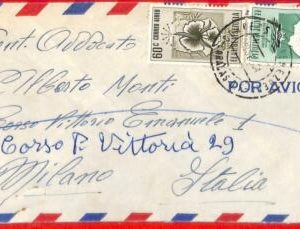 60c CORREO AEREO
Gent. Avvocato
Alberto Monti
POR AVIO
Corso Vittorio Emanuele 1
Corso P. Vittoria 29
Milano Italia